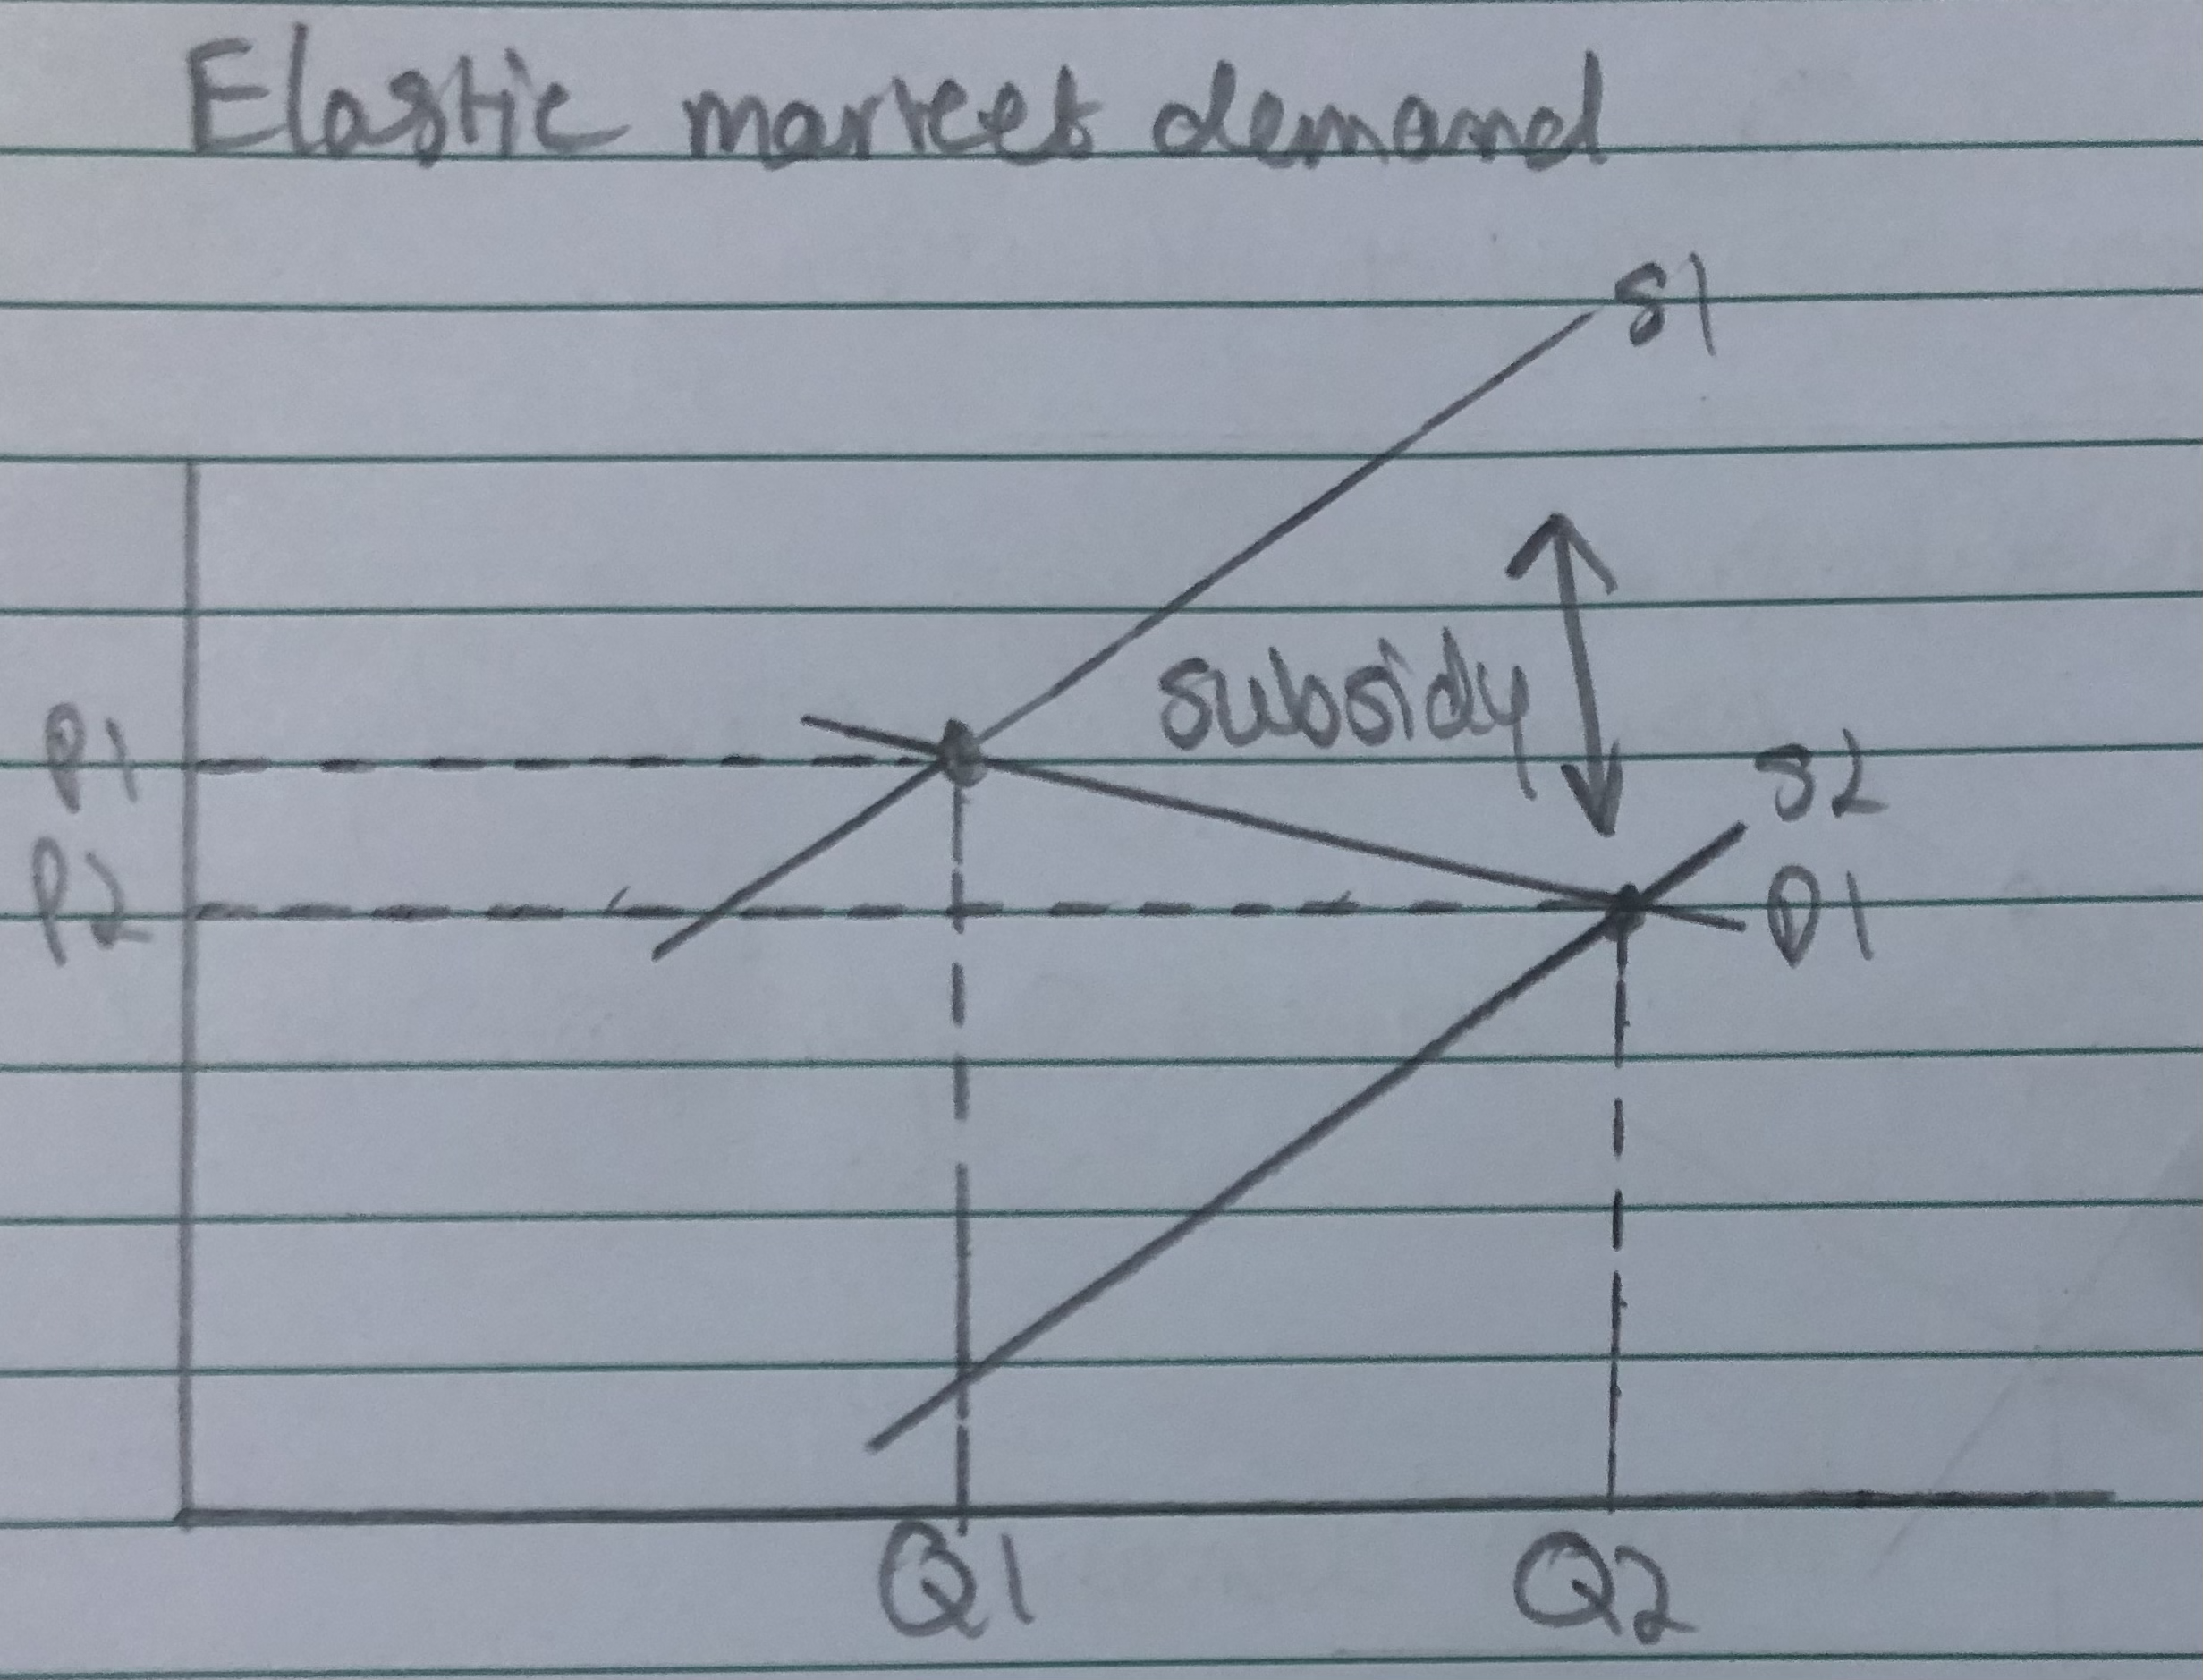 Elastic market demand
S1
subsidy
P1
S2
P2
D1
Q1
Q2